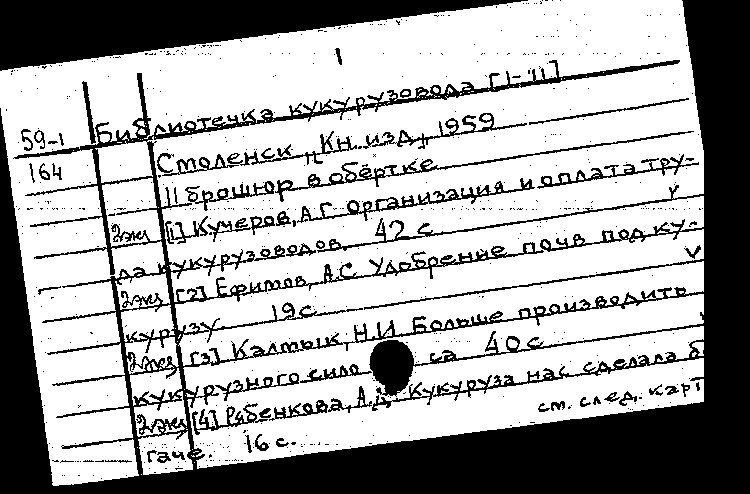 1
59-1 Библиотечка кукурузовода [1-11]
164 Смоленск, Кн. изд., 1959
11 брошюр в обёртке
2экз [1] Кучеров, А.Г. Организация и оплата тру-
да кукурузоводов. 42 с.
2экз [2] Ефимов, А.С. Удобрение почв под ку-
курузу. 19 с.
2экз [3] Калтык, Н.И. Больше производить
кукурузного сило са 40 с
2экз [4] Рябенкова, А.Д. Кукуруза нас сделала б
гаче. 16 с.
см. след. карт